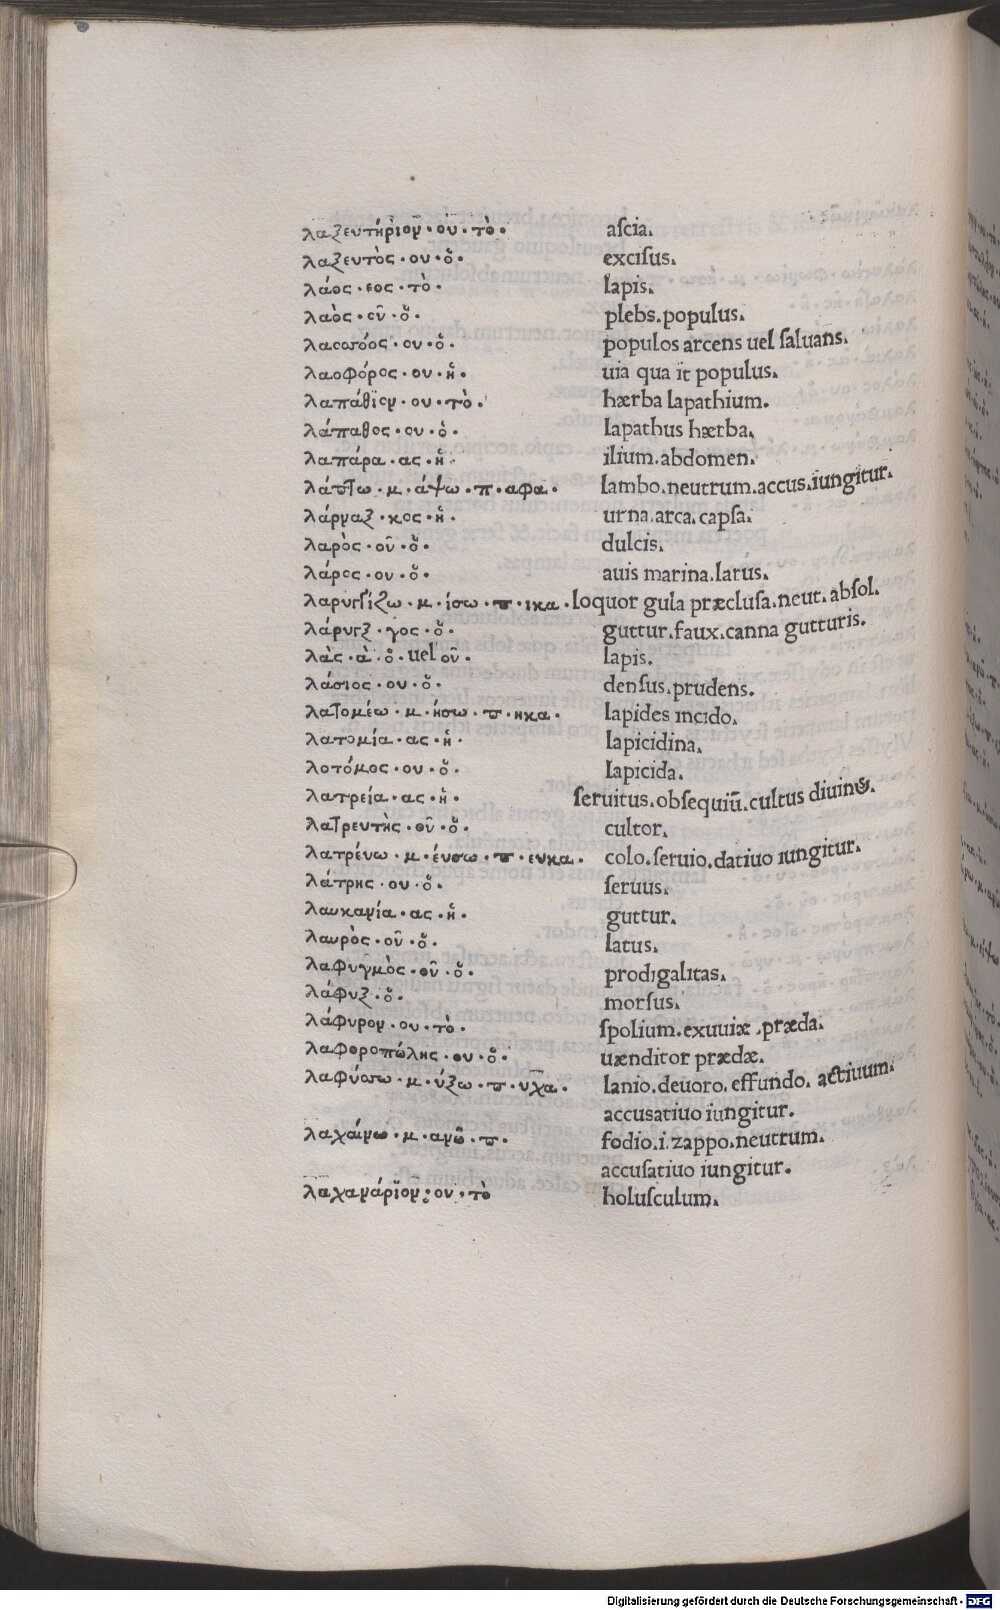 λαξευτήριον · ου · τὸ · ascia.
λαξευτὸς · ου · ὁ · excisus.
λάος · εος · τὸ · lapis.
λαὸς · οῦ · ὁ · plebs. populus.
λαοσόος · ου · ὁ · populos arcens uel saluans.
λαοφόρος · ου · ἡ · uia qua it populus.
λαπάθιον · ου · τὸ · hærba lapathium.
λάπαθος · ου · ὁ · lapathus hærba.
λαπάρα · ας · ἡ · ilium. abdomen.
λάπτω · μ · άψω · π · αφα · lambo. neutrum. accus. iungitur.
λάρναξ · κος · ἡ · urna. arca. capsa.
λαρὸς · οῦ · ὁ · dulcis.
λάρος · ου · ὁ · auis marina. larus.
λαρυγγίζω · μ · ίσω · π · ικα · loquor gula præclusa. neut. absol.
λάρυγξ · γος · ὁ · guttur. faux. canna gutturis.
λὰς · ᾶ · ὁ · uel οῦ · lapis.
λάσιος · ου · ὁ · densus. prudens.
λατομέω · μ · ήσω · π · ηκα · lapides incido.
λατομία · ας · ἡ · lapicidina.
λοτόμος · ου · ὁ · lapicida.
λατρεία · ας · ἡ · seruitus. obsequiū. cultus diuinus.
λατρευτὴς · οῦ · ὁ · cultor.
λατρέυω · μ · έυσω · π · ευκα · colo. seruio. datiuo iungitur.
λάτρης · ου · ὁ · seruus.
λαυκανία · ας · ἡ · guttur.
λαυρὸς · οῦ · ὁ · latus.
λαφυγμὸς · οῦ · ὁ · prodigalitas.
λάφυξ · ὁ · morsus.
λάφυρον · ου · τὸ · spolium. exuuiæ . præda.
λαφοροπώλης · ου · ὁ · uænditor prædæ.
λαφύσσω · μ · ύξω · π · υχα · lanio. deuoro. effundo. actiuum.
accusatiuo iungitur.
λαχάινω · μ · ανῶ · π · fodio. i. zappo. neutrum.
accusatiuo iungitur.
λαχανάριον · ου · τὸ holusculum.
Digitalisierung gefördert durch die Deutsche Forschungsgemeinschaft - DFG